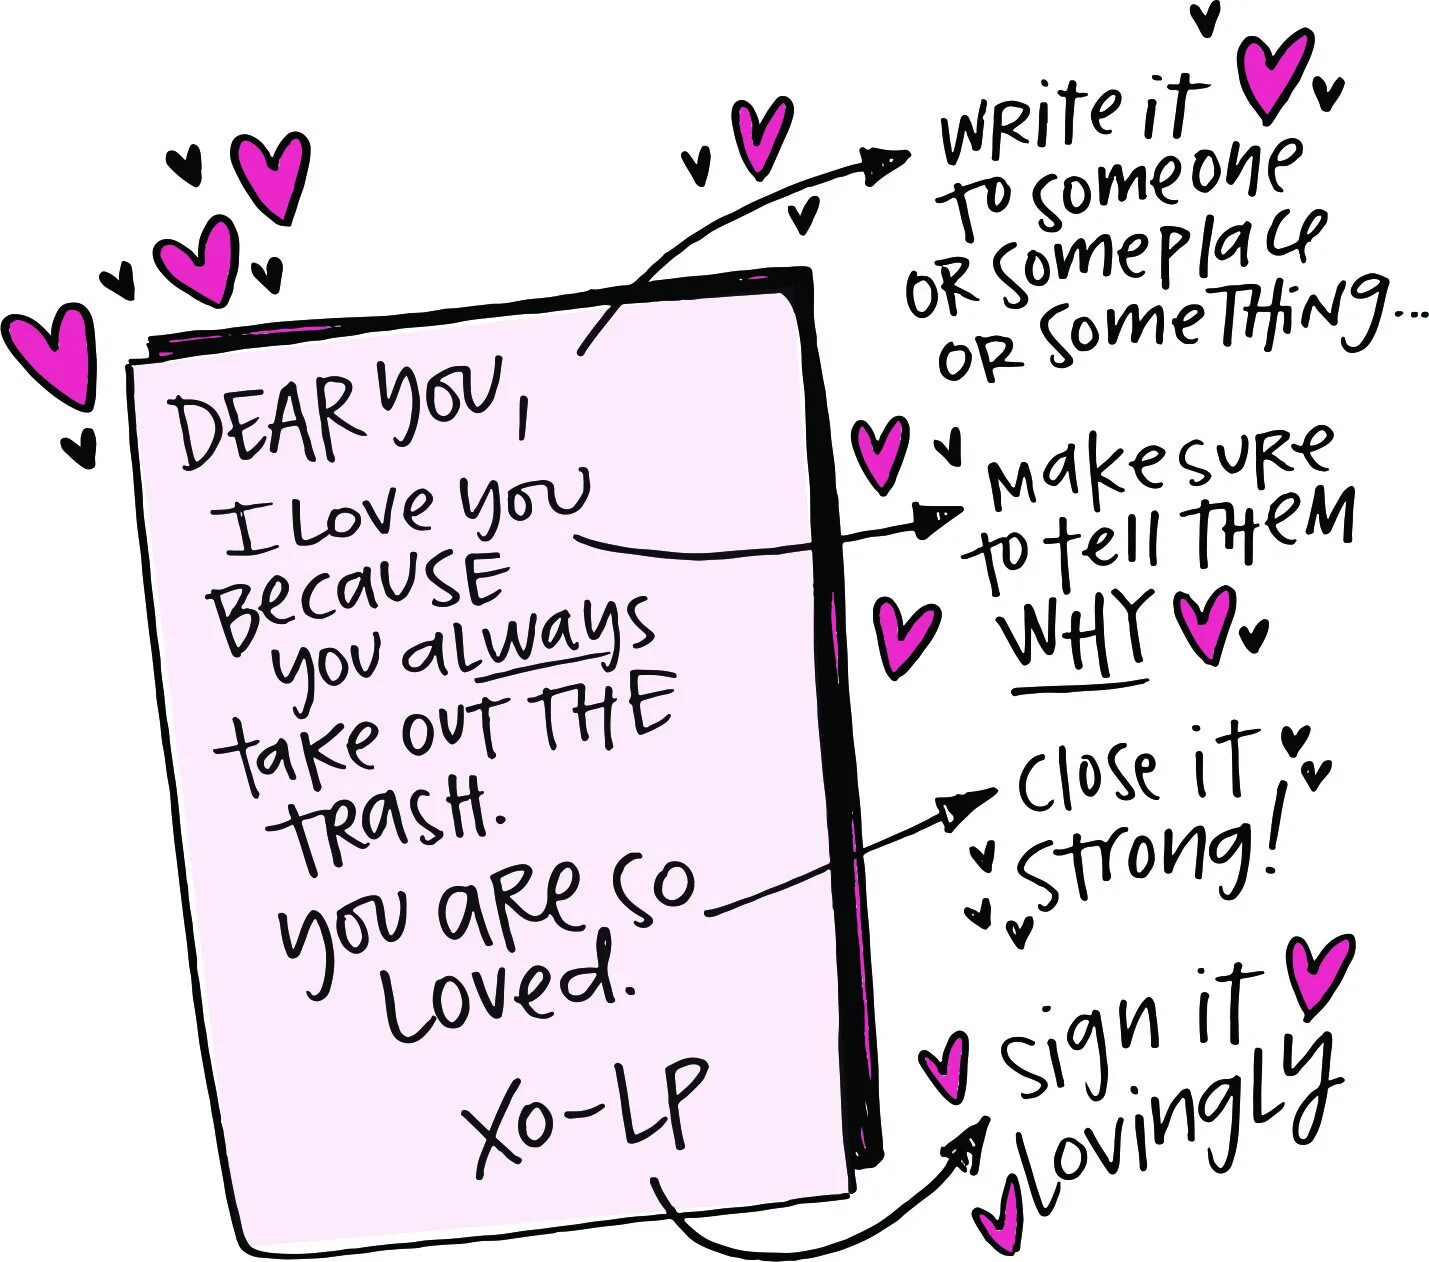 DEAR YOU,
I LOVE YOU
BECAUSE
YOU ALWAYS
TAKE OUT THE
TRASH.
YOU ARE SO
LOVED.
XO-LP
WRITE IT
TO SOMEONE
OR SOMEPLACE
OR SOMETHING...
MAKE SURE
TO TELL THEM
WHY
CLOSE IT
STRONG!
SIGN IT
LOVINGLY